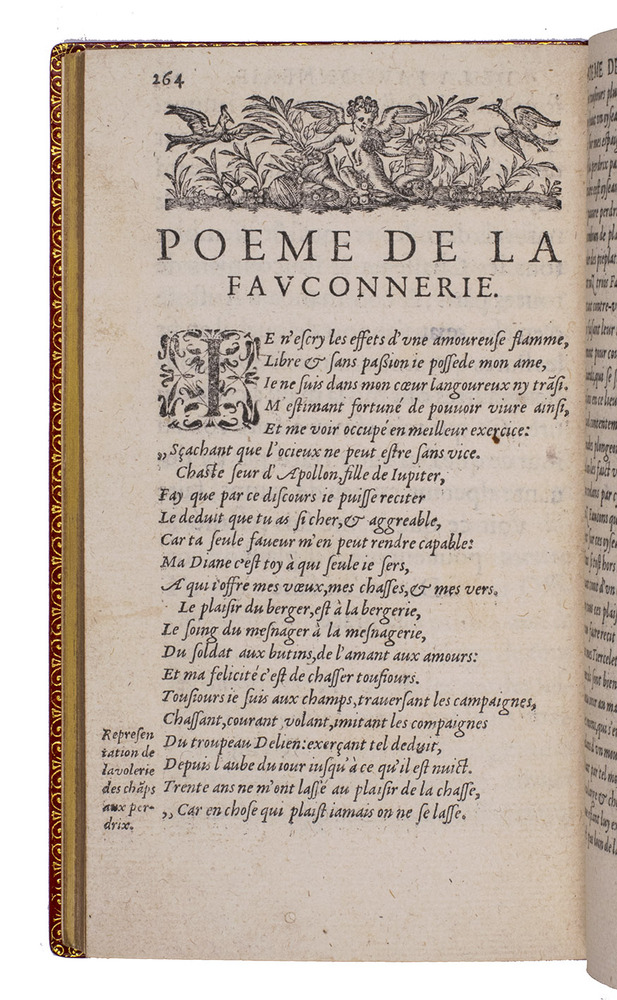 264
POEME DE LA
FAVCONNERIE.
IE n'eſcry les effets d'vne amoureuſe flamme,
Libre & ſans paßion ie poſſede mon ame,
Ie ne ſuis dans mon cœur langoureux ny trãſi.
M'eſtimant fortuné de pouuoir viure ainſi,
Et me voir occupé en meilleur exercice:
„Sçachant que l'ocieux ne peut eſtre ſans vice.
Chaſte ſeur d'Apollon, fille de Iupiter,
Fay que par ce diſcours ie puiſſe reciter
Le deduit que tu as ſi cher, & aggreable,
Car ta ſeule faueur m'en peut rendre capable:
Ma Diane c'eſt toy à qui ſeule ie ſers,
A qui i'offre mes vœux, mes chaſſes, & mes vers.
Le plaiſir du berger, eſt à la bergerie,
Le ſoing du meſnager à la meſnagerie,
Du ſoldat aux butins, de l'amant aux amours:
Et ma felicité c'eſt de chaſſer touſiours.
Touſiours ie ſuis aux champs, trauerſant les campaignes,
Chaſſant, courant, volant, imitant les compaignes
Du troupeau Delien: exerçant tel deduit,
Depuis l'aube du iour iuſqu'à ce qu'il eſt nuict.
Trente ans ne m'ont laſſé au plaiſir de la chaſſe,
„Car en choſe qui plaiſt iamais on ne ſe laſſe.
Repreſen
tation de
la volerie
des chãps
aux per-
drix.